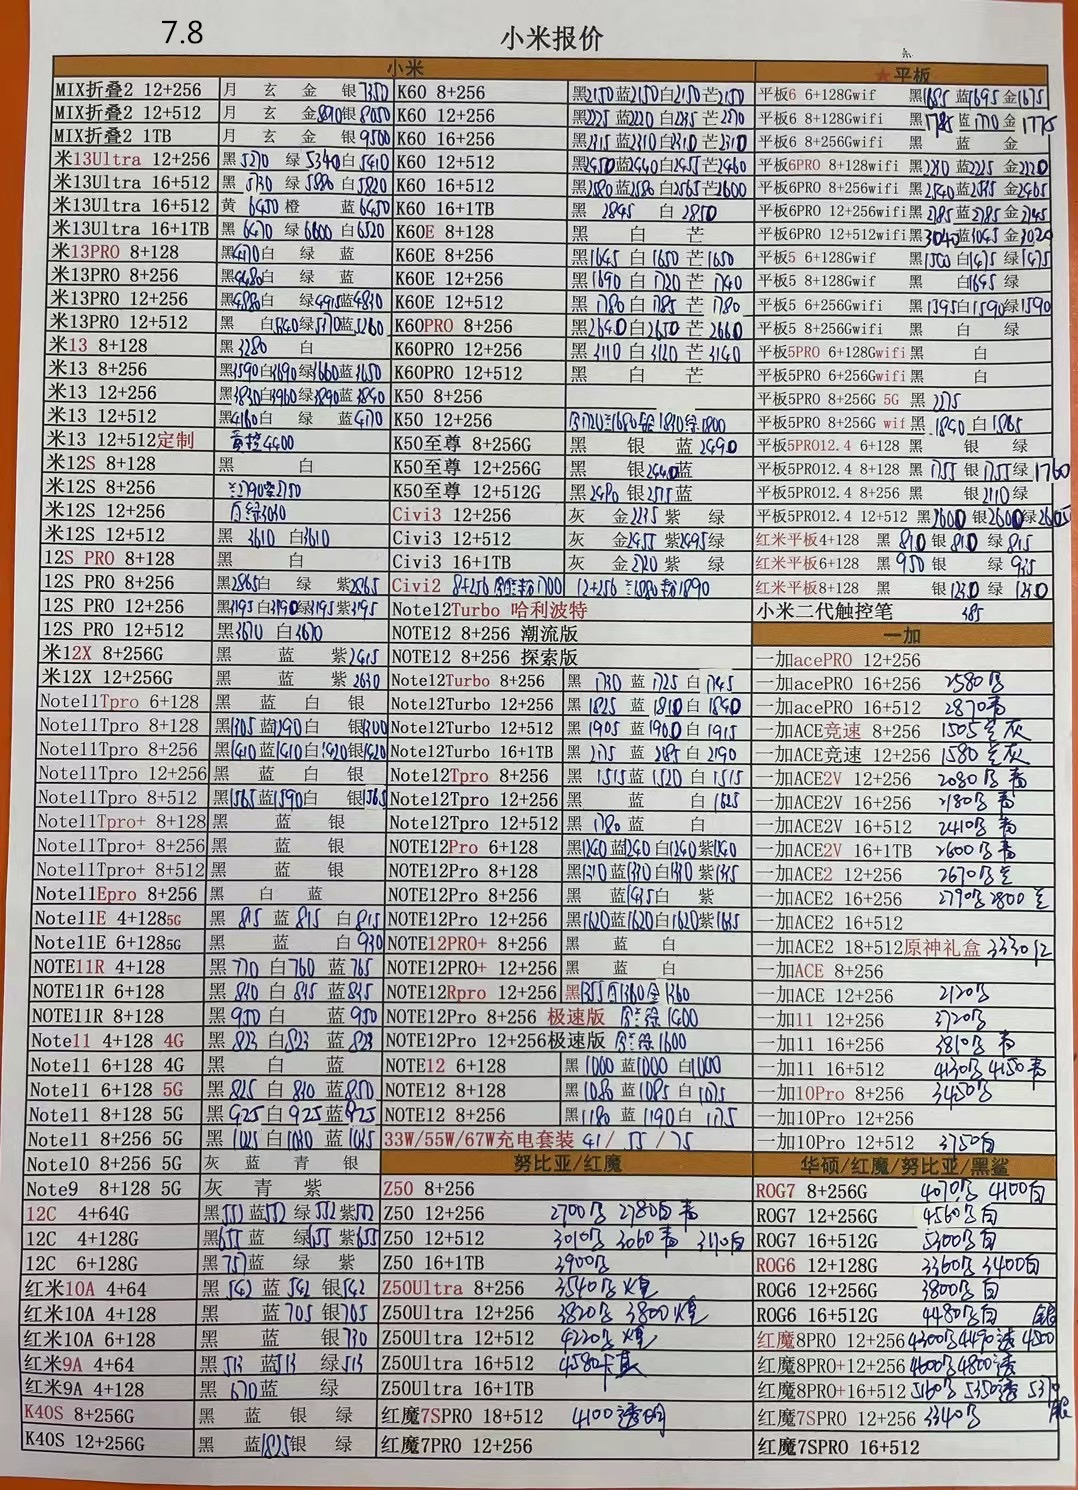 7.8
小米报价
小米
MIX折叠2 12+256 月 玄 金 银7350
MIX折叠2 12+512 月 玄 金 银8050
MIX折叠2 1TB 月 玄 金 银9500
米13Ultra 12+256 黑5270 绿5340 白5410
米13Ultra 16+512 黑5730 绿 白5820
米13Ultra 16+512 黄6450 橙 蓝6450
米13Ultra 16+1TB 黑6470 绿6600 白6520
米13PRO 8+128 黑4170 白 绿 蓝
米13PRO 8+256 黑4480 白 绿 蓝
米13PRO 12+256 黑4880 白 绿4915 蓝4830
米13PRO 12+512 黑 白 绿 蓝5260
米13 8+128 黑3280 白
米13 8+256 黑3590 白3690 绿3660 蓝3650
米13 12+256 黑 白3960 绿3890 蓝
米13 12+512 黑4160 白 绿 蓝4170
米13 12+512定制 4400
米12S 8+128 黑 白
米12S 8+256 2790 2750
米12S 12+256 3030
米12S 12+512 黑 3610 白3610
12S PRO 8+128 黑 白
12S PRO 8+256 黑2865 白 绿 紫2865
12S PRO 12+256 黑3195 白3190 绿3195 紫3195
12S PRO 12+512 黑3670 白3670
米12X 8+256G 黑 蓝 紫2415
米12X 12+256G 黑 蓝 紫2630
Note11Tpro 6+128 黑 蓝 白 银
Note11Tpro 8+128 黑1305 蓝1290 白 银1300
Note11Tpro 8+256 黑1410 蓝1410 白1420 银1420
Note11Tpro 12+256 黑 蓝 白 银
Note11Tpro 8+512 黑1565 蓝1590 白 银1565
Note11Tpro+ 8+128 黑 蓝 银
Note11Tpro+ 8+256 黑 蓝 银
Note11Tpro+ 8+512 黑 蓝 银
Note11Epro 8+256 黑 白 蓝
Note11E 4+128 5G 黑 815 蓝 815 白815
Note11E 6+128 5G 黑 蓝 白930
NOTE11R 4+128 黑770 白760 蓝765
NOTE11R 6+128 黑 白 蓝
NOTE11R 8+128 黑950 白 蓝950
Note11 4+128 4G 黑 823 白823 蓝 823
Note11 6+128 4G 黑 白 蓝
Note11 6+128 5G 黑 825 白 蓝850
Note11 8+128 5G 黑925 白925 蓝925
Note11 8+256 5G 黑 1025 白1030 蓝1035
Note10 8+256 5G 灰 蓝 青 银
Note9 8+128 5G 灰 青 紫
12C 4+64G 黑551 蓝552 绿552 紫552
12C 4+128G 黑655 蓝 绿655 紫655
12C 6+128G 黑757 蓝 绿 紫
红米10A 4+64 黑542 蓝542 银542
红米10A 4+128 黑 蓝705 银705
红米10A 6+128 黑 蓝 银730
红米9A 4+64 黑513 蓝513 绿513
红米9A 4+128 黑 670 蓝 绿
K40S 8+256G 黑 蓝 银 绿
K40S 12+256G 黑 蓝1825 银 绿
K60 8+256 黑2150 蓝2150 白2150 芒2150
K60 12+256 黑2225 蓝2220 白2235 芒2270
K60 16+256 黑2315 蓝2310 白2310 芒2310
K60 12+512 黑2450 蓝2440 白2455 芒2460
K60 16+512 黑2580 蓝2580 白2565 芒2600
K60 16+1TB 黑 2845 白 2850
K60E 8+128 黑 白 芒
K60E 8+256 黑1645 白 1650 芒1650
K60E 12+256 黑1690 白 1720 芒 1740
K60E 12+512 黑 1780 白 1785 芒 1780
K60PRO 8+256 黑2640 白2650 芒 2660
K60PRO 12+256 黑3110 白3120 芒 3140
K60PRO 12+512 黑 白 芒
K50 8+256
K50 12+256 1720 1680 1830 1800
K50至尊 8+256G 黑 银 蓝2490
K50至尊 12+256G 黑 银2440 蓝
K50至尊 12+512G 黑2490 银2515 蓝
Civi3 12+256 灰 金2235 紫 绿
Civi3 12+512 灰 金2455 紫2495 绿
Civi3 16+1TB 灰 金2720 紫 绿
Civi2 8+256 1700 12+256 1880 1890
Note12Turbo 哈利波特
NOTE12 8+256 潮流版
NOTE12 8+256 探索版
Note12Turbo 8+256 黑 1730 蓝 1725 白1745
Note12Turbo 12+256 黑 1825 蓝 1810 白1840
Note12Turbo 12+512 黑 1905 蓝 1900 白 1915
Note12Turbo 16+1TB 黑 2175 蓝 2185 白 2190
Note12Tpro 8+256 黑 1515 蓝1520 白 1515
Note12Tpro 12+256 黑 蓝 白 1625
Note12Tpro 12+512 黑 1780 蓝 白
NOTE12Pro 6+128 黑1240 蓝1240 白1240 紫1240
NOTE12Pro 8+128 黑1310 蓝1330 白1310 紫1345
NOTE12Pro 8+256 黑 蓝1435 白 紫
NOTE12Pro 12+256 黑1620 蓝1620 白1620 紫1635
NOTE12PRO+ 8+256 黑 蓝 白
NOTE12PRO+ 12+256 黑 蓝 白
NOTE12Rpro 12+256 黑1355 白1360 金1360
NOTE12Pro 8+256 极速版 1400
NOTE12Pro 12+256极速版 1600
NOTE12 6+128 黑1000 蓝1000 白1000
NOTE12 8+128 黑1080 蓝1085 白 1075
NOTE12 8+256 黑1180 蓝1190 白 1175
33W/55W/67W充电套装 41/ 55 / 75
努比亚/红魔
Z50 8+256
Z50 12+256 2700 2780白 青
Z50 12+512 3010 3060 青 3110白
Z50 16+1TB 3900
Z50Ultra 8+256 3540
Z50Ultra 12+256 3820 3800
Z50Ultra 12+512 4220
Z50Ultra 16+512 4580
Z50Ultra 16+1TB
红魔7SPRO 18+512 4100透明
红魔7PRO 12+256
★平板
平板6 6+128Gwif 黑1685 蓝1695 金1675
平板6 8+128Gwif 黑1785 蓝1770 金1775
平板6 8+256Gwif 黑 蓝 金
平板6PRO 8+128wifi 黑2210 蓝2225 金2220
平板6PRO 8+256wifi 黑2540 蓝2545 金2465
平板6PRO 12+256wifi 黑2785 蓝2785 金2745
平板6PRO 12+512wifi 黑3040 蓝3045 金3020
平板5 6+128Gwif 黑1500 白1475 绿1475
平板5 8+128Gwif 黑 白1645 绿
平板5 6+256Gwifi 黑1595 白1590 绿1590
平板5 8+256Gwifi 黑 白 绿
平板5PRO 6+128Gwifi 黑 白
平板5PRO 6+256Gwifi 黑 白
平板5PRO 8+256G 5G 黑 2275
平板5PRO 8+256G wif 黑1840 白1865
平板5PRO12.4 6+128 黑 银 绿
平板5PRO12.4 8+128 黑1755 银1755 绿1760
平板5PRO12.4 8+256 黑 银2110 绿
平板5PRO12.4 12+512 黑2600 银2600 绿2605
红米平板4+128 黑 810 银 810 绿 815
红米平板6+128 黑 950 银 绿 935
红米平板8+128 黑 银1230 绿 1230
小米二代触控笔 385
一加
一加acePRO 12+256
一加acePRO 16+256 2580
一加acePRO 16+512 2870青
一加ACE竞速 8+256 1505 灰
一加ACE竞速 12+256 1580 灰
一加ACE2V 12+256 2080 青
一加ACE2V 16+256 2180 青
一加ACE2V 16+512 2410 青
一加ACE2V 16+1TB 2600 青
一加ACE2 12+256 2670
一加ACE2 16+256 2790 2800
一加ACE2 16+512
一加ACE2 18+512原神礼盒 3330
一加ACE 8+256
一加ACE 12+256 2120
一加11 12+256 3720
一加11 16+256 3810 青
一加11 16+512 4130 4150青
一加10Pro 8+256 3450
一加10Pro 12+256
一加10Pro 12+512 3750白
华硕/红魔/努比亚/黑鲨
ROG7 8+256G 4070 4100白
ROG7 12+256G 4560 白
ROG7 16+512G 5300 白
ROG6 12+128G 3360 3400白
ROG6 12+256G 3800 白
ROG6 16+512G 4480 白
红魔8PRO 12+256 4300 4490透 4500
红魔8PRO+12+256 4600 4800透
红魔8PRO+16+512 5160 5350透 5370
红魔7SPRO 12+256 3340
红魔7SPRO 16+512